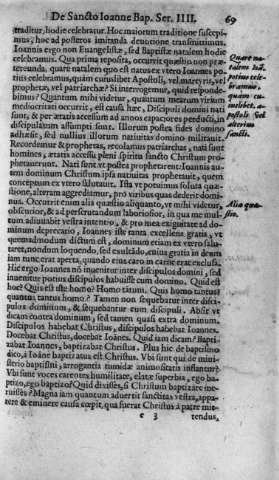 De Sancto Ioanne Bap. Ser. IIII. 69
traditur, hodie celebratur. Hoc maiorum traditione suscepi-
mus, hoc ad posteros imitanda deuotione transmittimus.
Ioannis ergo non Euangelistæ, sed Baptistæ natalem hodie
celebramus. Qua præposita, occurrit quæstio non præ-
tereunda. quare natalem quo est natus ex vtero Ioannes po-
tius celebramus, quàm cuiuslibet Apostoli, vel martyris, vel
prophetæ, vel patriarchæ? Si interrogemur, quid responde-
bimus? Quantum mihi videtur, quantum meatum virium
mediocritati occurrit, est causa hæc, Discipuli domini nati
sunt, & per ætatis accessum ad annos capaciores perducti, in
discipulatum assumpti sunt. Illorum postea fides domino
adhæsit, sed nullius illorum natiuitas domino militauit.
Recordemur & prophetas, recolamus patriarchas, nati sunt
homines, ætatis accessu pleni Spiritu sancto Christum pro-
phetauerunt. Nati sunt vt postea prophetarent: Ioannis au-
tem dominum Christum ipsa natiuitas prophetauit, quem
conceptum ex vtero salutauit. Ista vt potuimus soluta quæ-
stione, alteram aggrediemur, pro viribus quas dederit domi-
nus. Occurrit enim alia quæstio aliquanto, vt mihi videtur,
obscurior, & ad perscrutandum laboriosior, in qua me mul-
tum adiuuabit vestra intentio, & pro mea exiguitate ad do-
minum deprecatio, Ioannes iste tanta excellente gratia, vt
quemadmodum dictum est, dominum etiam ex vtero saluta-
ret, nondum loquendo, sed exultado, cuius gratia in deum
iam tunc erat aperta, quando eius caro in carne erat exclusa:
Hic ergo Ioannes nõ inuenitur inter discipulos domini, sed
inuenitur potius discipulos habuisse cum domino. Quid est
hoc? Quis est iste homo? Homo tantus. Quis homo tantus?
quantus tantus homo? Tamen non sequebatur inter disci-
pulos dominum, & sequebantur eum discipuli. Absit vt
dicam contra dominum, sed tamen quasi extra dominum.
Discipulos habebat Christus, discipulos habebat Ioannes.
Docebat Christus, docebat Ioãnes. Quid iam dicam? Bapti-
zabat Ioannes, baptizabat Christus. Plus hic de baptismo
dico, à Ioãne baptizatus est Christus. Vbi sunt qui de mini-
sterio baptismi, arrogantia tumidæ animositatis inflantur?
Vbi sunt voces carentes humilitate, elatæ superbia, ego ba-
ptizo, ego baptizo? Quid diuisses, si Christum baptizare me-
ruisses? Magna iam quantum aduertit sanctitas vestra, appa-
rere & eminere causa cœpit, qua fuerat Christus à patre mit-
e 3 tendus,
Quare na-
talem Ioã.
potius cele-
bramus,
quàm cu-
iuslibet a-
postoli vel
alterius
sancti.
Alia quæ-
stio.